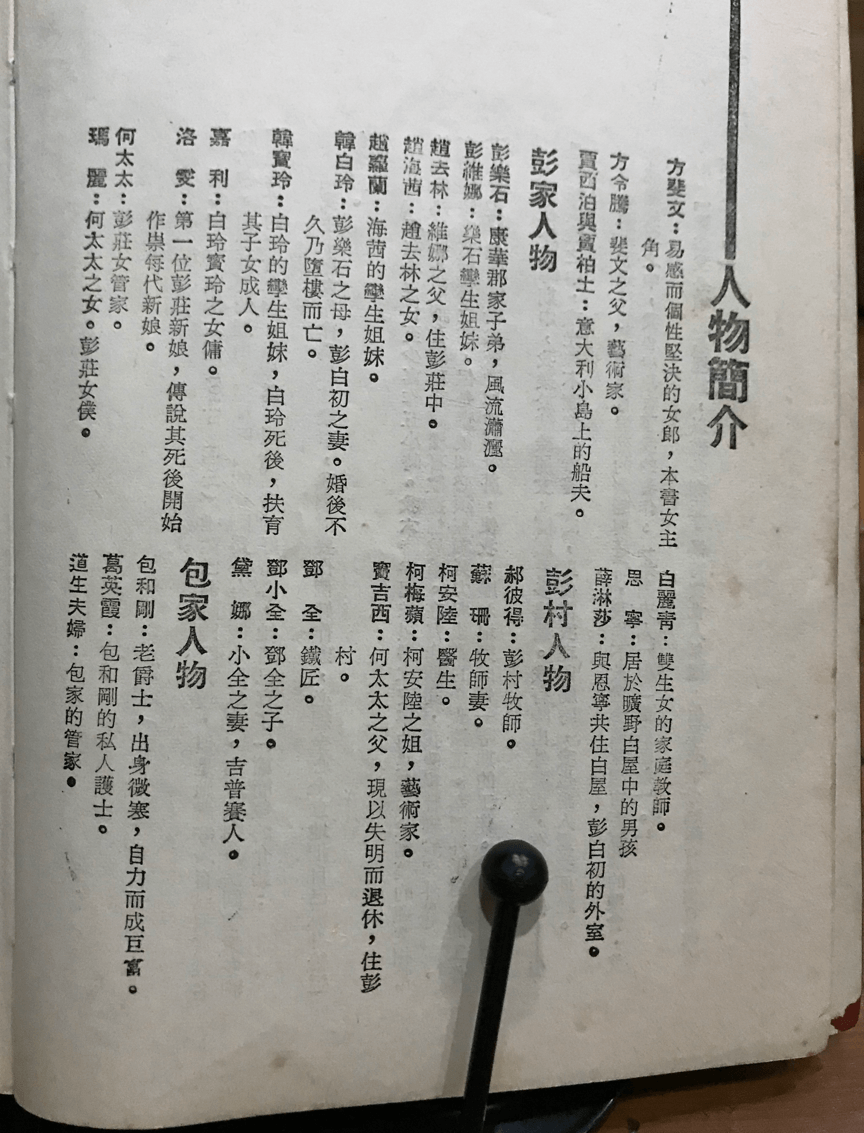 人物簡介
方斐文：易感而個性堅決的女郎，本書女主
角。
方令騰：斐文之父，藝術家。
賈西泊與賈柏土：意大利小島上的船夫。
彭家人物
彭樂石：康華郡家子弟，風流瀟灑。
彭維娜：樂石孿生姐妹。
趙去林：維娜之父，住彭莊中。
趙海茜：趙去林之女。
趙蘿蘭：海茜的孿生姐妹。
韓白玲：彭樂石之母，彭白初之妻。婚後不
久乃墮樓而亡。
韓寶玲：白玲的孿生姐妹，白玲死後，扶育
其子女成人。
嘉　利：白玲寶玲之女傭。
洛　雯：第一位彭莊新娘，傳說其死後開始
作祟每代新娘。
何太太：彭莊女管家。
瑪　麗：何太太之女。彭莊女僕。
白麗青：雙生女的家庭教師。
思　寧：居於曠野白屋中的男孩
薛淋莎：與恩寧共住白屋，彭白初的外室。
彭村人物
郝彼得：彭村牧師。
蘇　珊：牧師妻。
柯安陸：醫生。
柯梅蘋：柯安陸之姐，藝術家。
寶吉西：何太太之父，現以失明而退休，住彭
村。
鄧　全：鐵匠。
鄧小全：鄧全之子。
黛　娜：小全之妻，吉普賽人。
包家人物
包和剛：老爵士，出身微寒，自力而成巨富。
葛英霞：包和剛的私人護士。
道生夫婦：包家的管家。